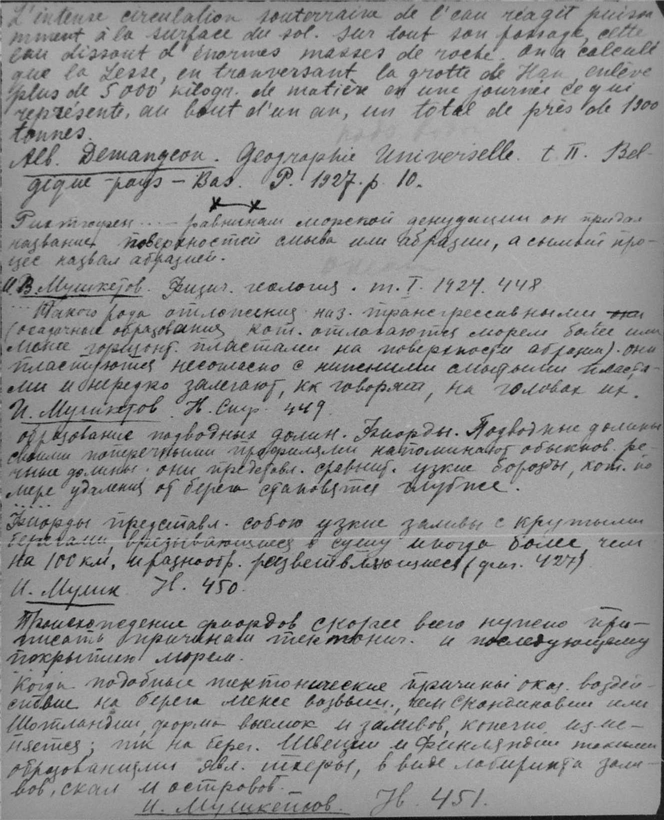 L'intense circulation souterraine de l'eau réagit puissa-
mment à la surface du sol. Sur tout son passage, cette
eau dissout d'énormes masses de roche. On a calculé
que la Lesse, en tranversant la grotte de Han, enlève
plus de 5000 kilogr. de matière en une journée ce qui
représente, au bout d'un an, un total de près de 1900
tonnes.
Alb. Demangeon. Geographie Universelle. t. II. Bel-
gique - pays - Bas. P. 1927. p. 10.
Рихтгофен ... - равнинам морской денудации он придал
название поверхностей смыва или абразии, а самый про-
цес назвал абразией.
И.В. Мушкетов. Физич. геология. т. I. 1924. 448
Такого рода отложения наз. трансгрессивными
(осадочные образования кот. отлагаются морем более или
менее горизонт. пластами на поверхности абразии). они
пластуются несогласно с нижними смытыми пласта-
ми и нередко залегают, кк говорят, на головах их.
И. Мушкетов. 449
образование подводных долин. Фиорды. Подводные долины
своими поперечными профилями напоминают обыкнов. ре-
чные долины. они представл. сравнит. узкие борозды, кот. по
мере удаления от берега становятся глубже.
Фиорды представл. собою узкие заливы с крутыми
берегами врезывающиеся в сушу иногда более чем
на 100 км, и разнообр. разветвляющиеся (фиг. 427)
И. Мушк. 450.
Происхождение фиордов скорее всего нужно при-
писать причинам тектонич. и последующему
покрытию морем.
Когда подобные тектонические причины оказ. воздей-
ствие на берега менее возвыш., чем Скандинавии или
Шотландии, форма выемок и заливов, конечно изме-
няется; тк на берег. Швеции и Финляндии такими
образованиями явл. шхеры, в виде лабиринта зали-
вов, скал и островов.
И. Мушкетов. 451.